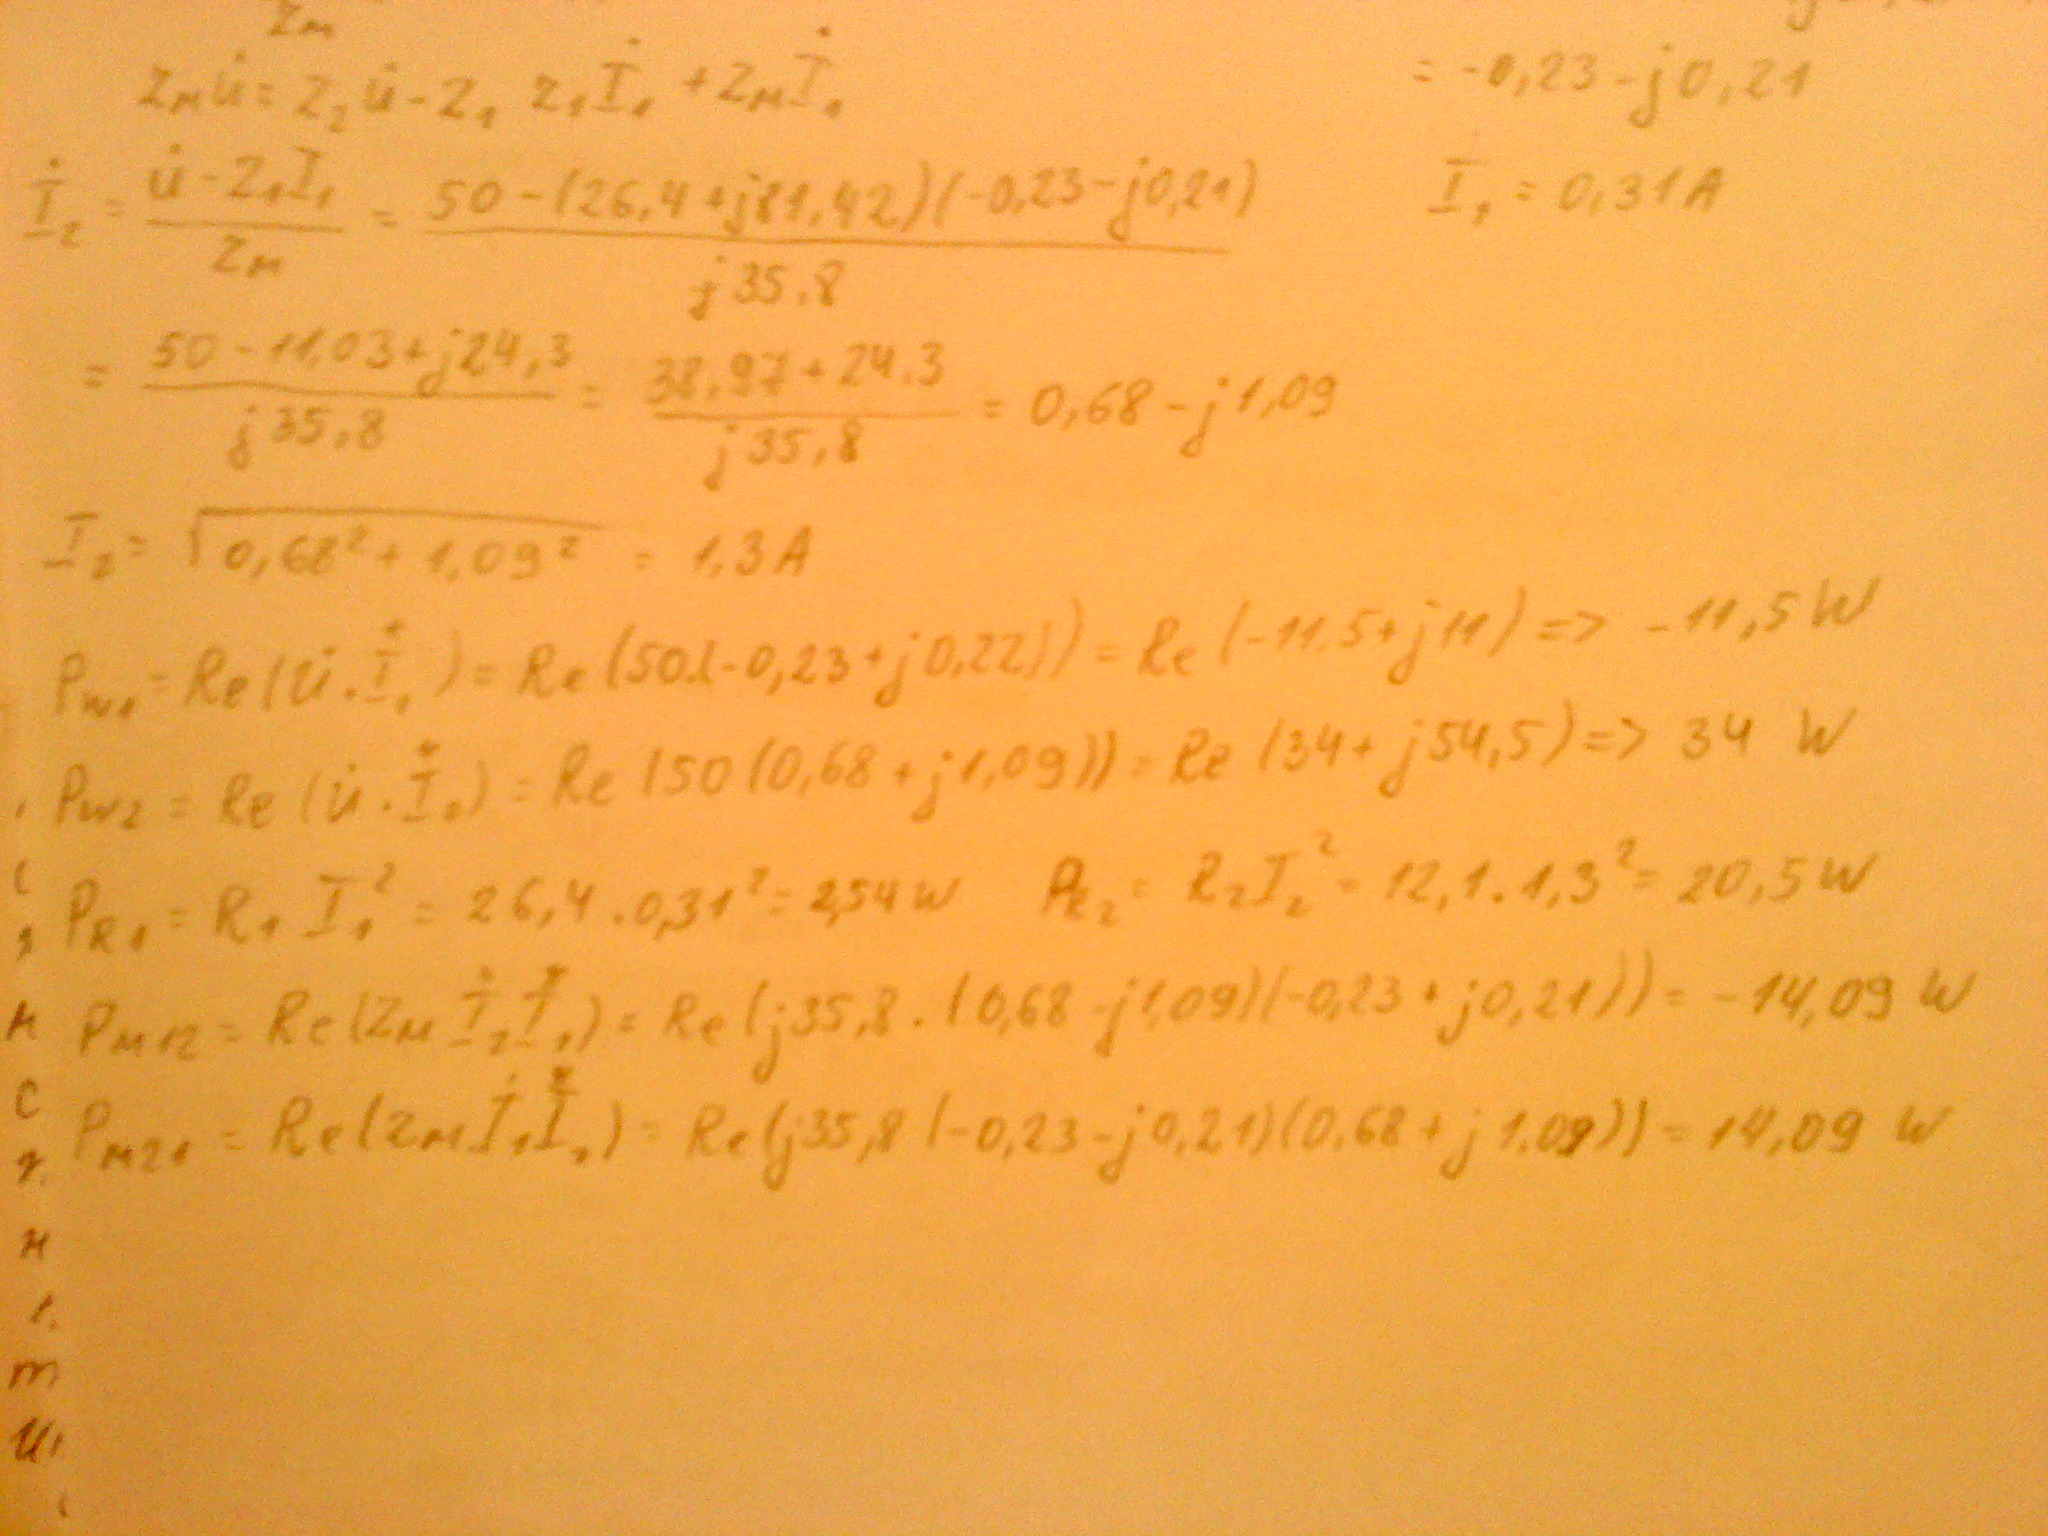 Z_M
Z_M U̇ = Z_2 U̇ - Z_1 Z_1 İ_1 + Z_M İ_1
= -0,23 - j0,21
İ_2 = (U̇ - Z_1 İ_1) / Z_M = (50 - (26,4 + j81,42)(-0,23 - j0,21)) / j35,8
I_1 = 0,31 A
= (50 - 11,03 + j24,3) / j35,8 = (38,97 + 24,3) / j35,8 = 0,68 - j1,09
I_2 = √(0,68² + 1,09²) = 1,3 A
P_W1 = Re(U̇ . I*_1) = Re(50.(-0,23 + j0,22)) = Re(-11,5 + j11) => -11,5 W
P_W2 = Re(U̇ . I*_2) = Re(50(0,68 + j1,09)) = Re(34 + j54,5) => 34 W
P_R1 = R_1 I_1² = 26,4 . 0,31² = 2,54 W P_R2 = R_2 I_2² = 12,1 . 1,3² = 20,5 W
P_M12 = Re(Z_M İ_2 I*_1) = Re(j35,8 . (0,68 - j1,09)(-0,23 + j0,21)) = -14,09 W
P_M21 = Re(Z_M İ_1 I*_2) = Re(j35,8 (-0,23 - j0,21)(0,68 + j1.09)) = 14,09 W